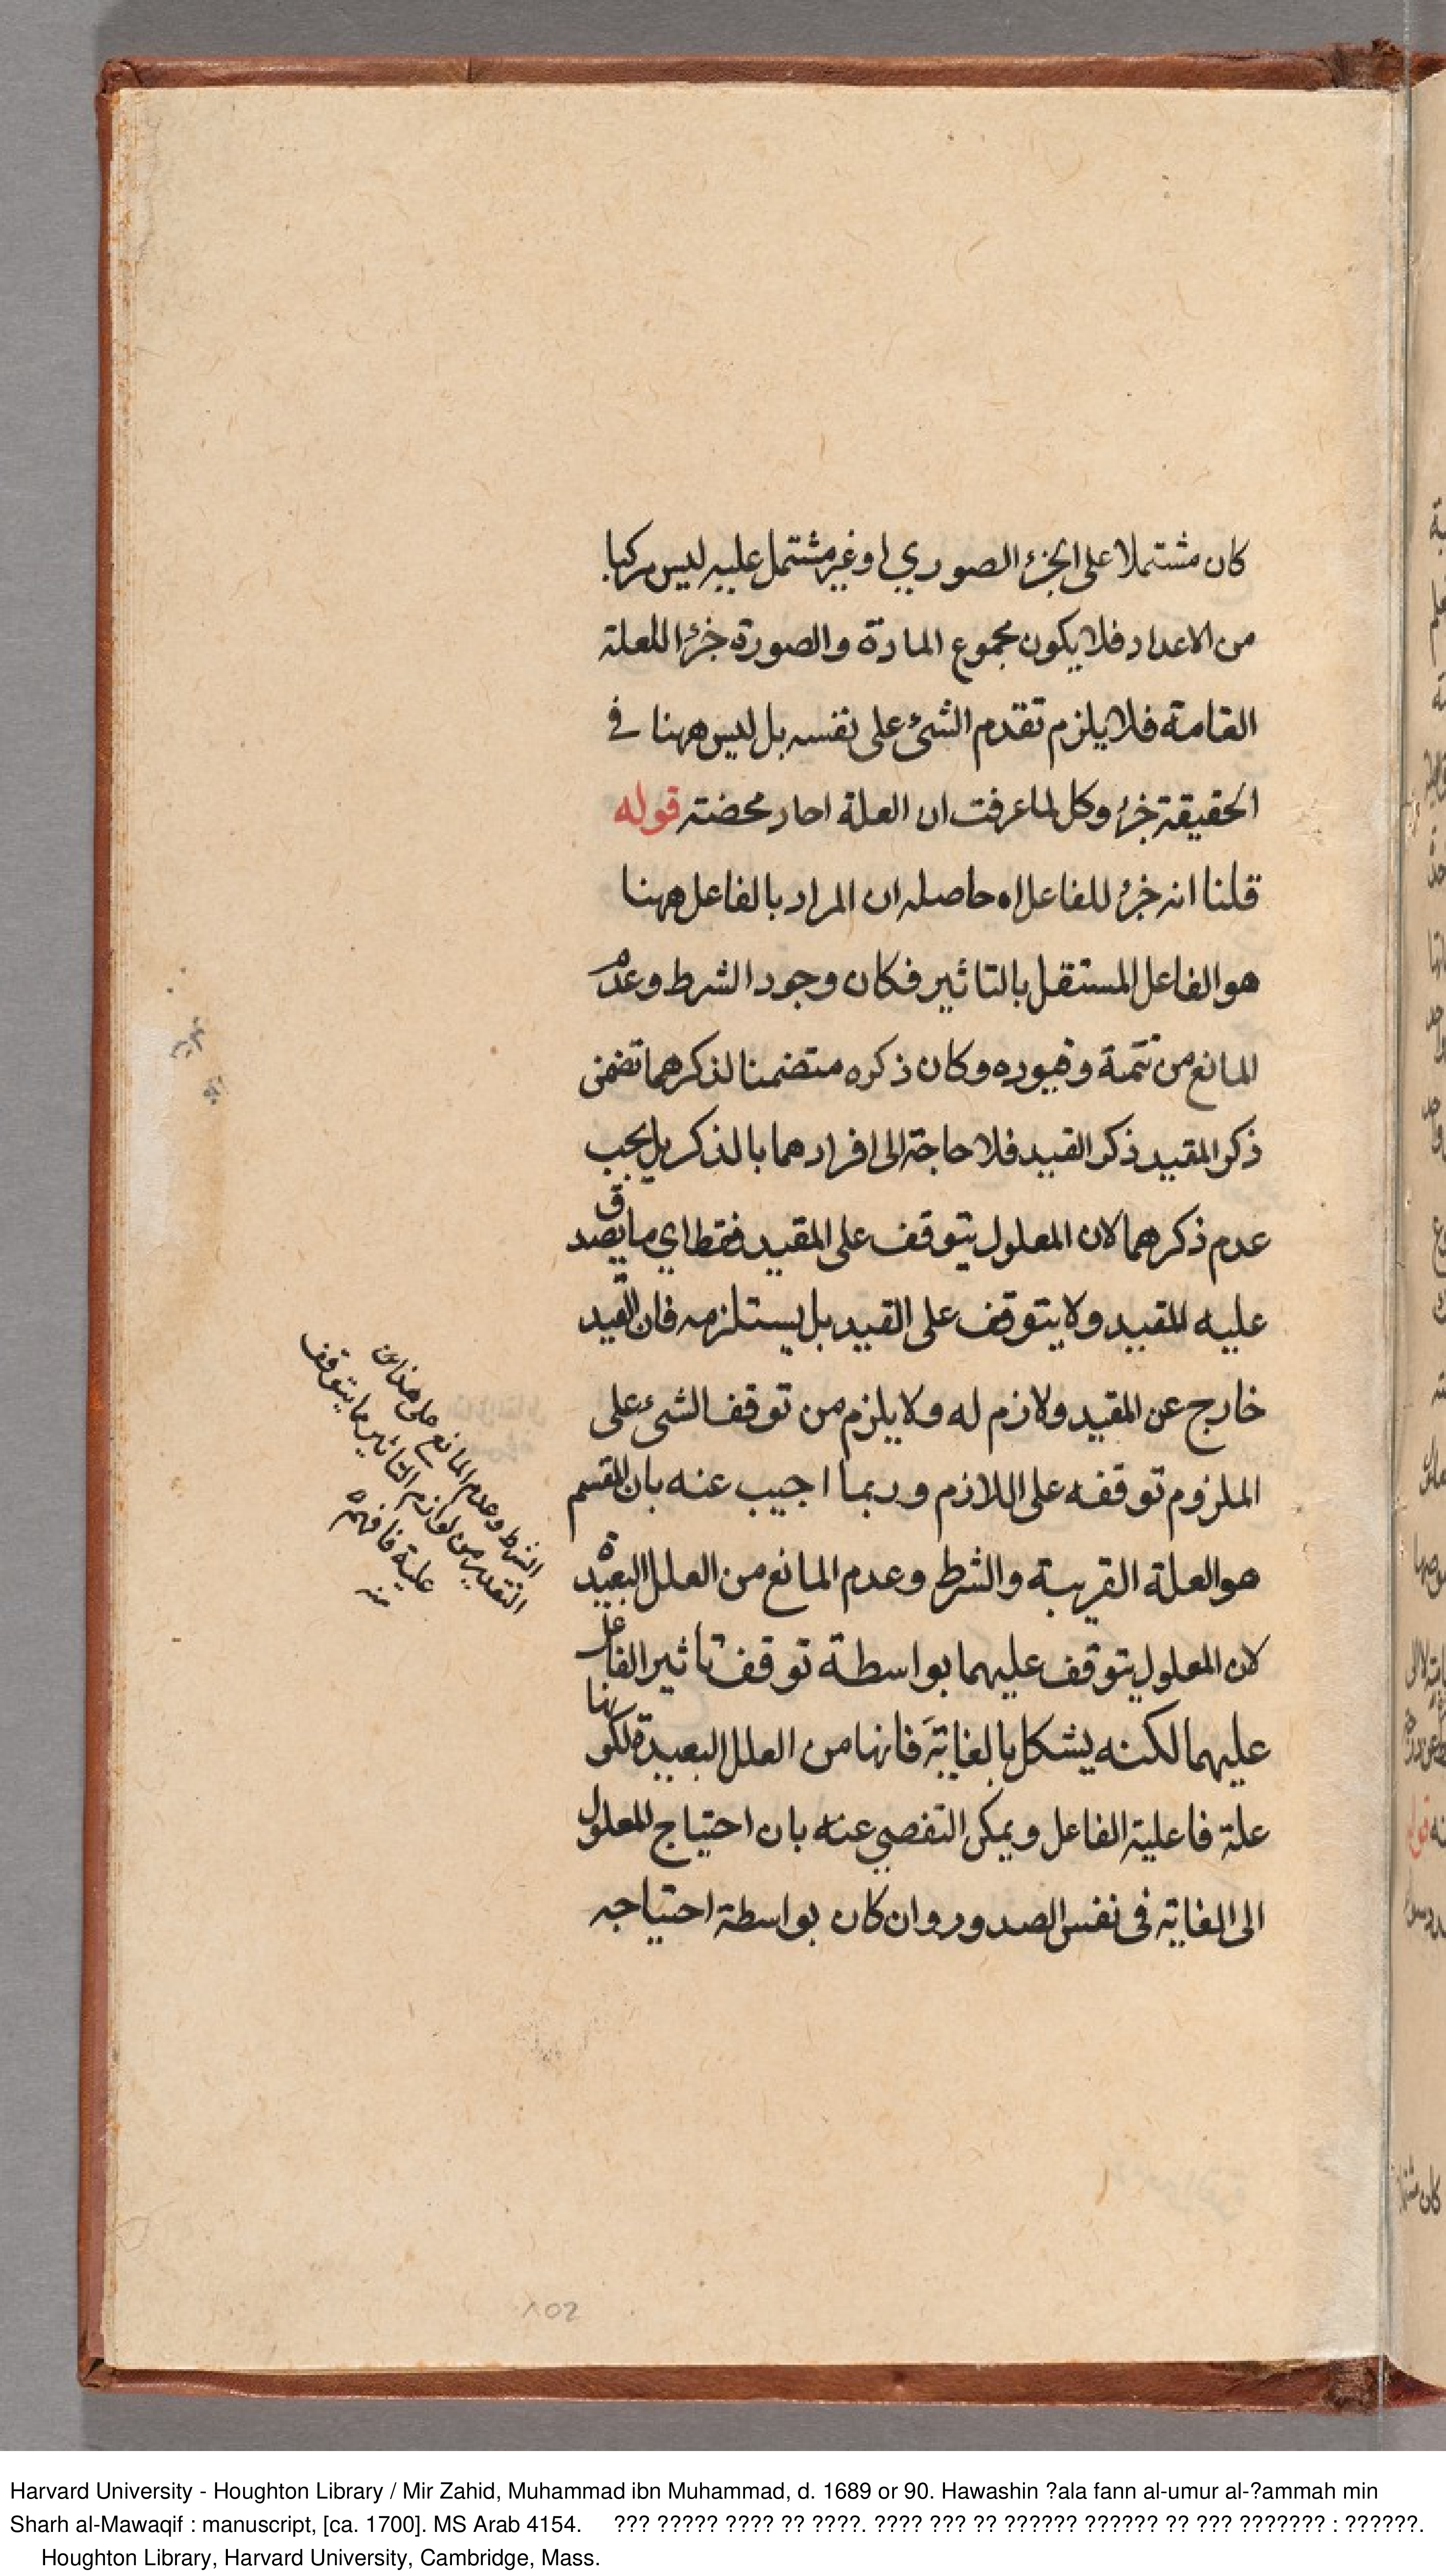 كان مشتملا على الجزء الصوري او غير مشتمل عليه ليس مركبا
من الاعداد فلا يكون مجموع المادة والصورة جزء اللعلة
التامة فلا يلزم تقدم الشئ على نفسه بل ليس ههنا في
الحقيقة جزء وكل لما عرفت ان العلة احاد محضته قوله
قلنا انه جزء للفاعل اه حاصله ان المراد بالفاعل ههنا
هو الفاعل المستقل بالتاثير فكان وجود الشرط وعدم
المانع من تتمة وقيوده وكان ذكره متضمنا لذكرهما تضمن
ذكر المقيد ذكر القيد فلا حاجة الى افرادهما بالذكر بل يجب
عدم ذكرهما لان المعلول يتوقف على المقيد فقط اي ما يصدق
عليه المقيد ولا يتوقف على القيد بل يستلزمه فان القيد
خارج عن المقيد ولازم له ولا يلزم من توقف الشئ على
الملزوم توقفه على اللازم وربما اجيب عنه بان المقسم
هو العلة القريبة والشرط وعدم المانع من العلل البعيدة
لان المعلول يتوقف عليهما بواسطة توقف تاثير الفاعل
عليهما لكنه يشكل بالغاية فانها من العلل البعيدة لكونها
علة فاعلية الفاعل ويمكن التفصي عنه بان احتياج المعلول
الى الغاية في نفس الصدور وان كان بواسطة احتياجه
الشرط وعدم المانع على هذا
التقدير من لوازم التاثير ما يتوقف
علية فافهم
منه
102
Harvard University - Houghton Library / Mir Zahid, Muhammad ibn Muhammad, d. 1689 or 90. Hawashin ?ala fann al-umur al-?ammah min
Sharh al-Mawaqif : manuscript, [ca. 1700]. MS Arab 4154. ??? ????? ???? ?? ????. ???? ??? ?? ?????? ?????? ?? ??? ??????? : ??????.
Houghton Library, Harvard University, Cambridge, Mass.